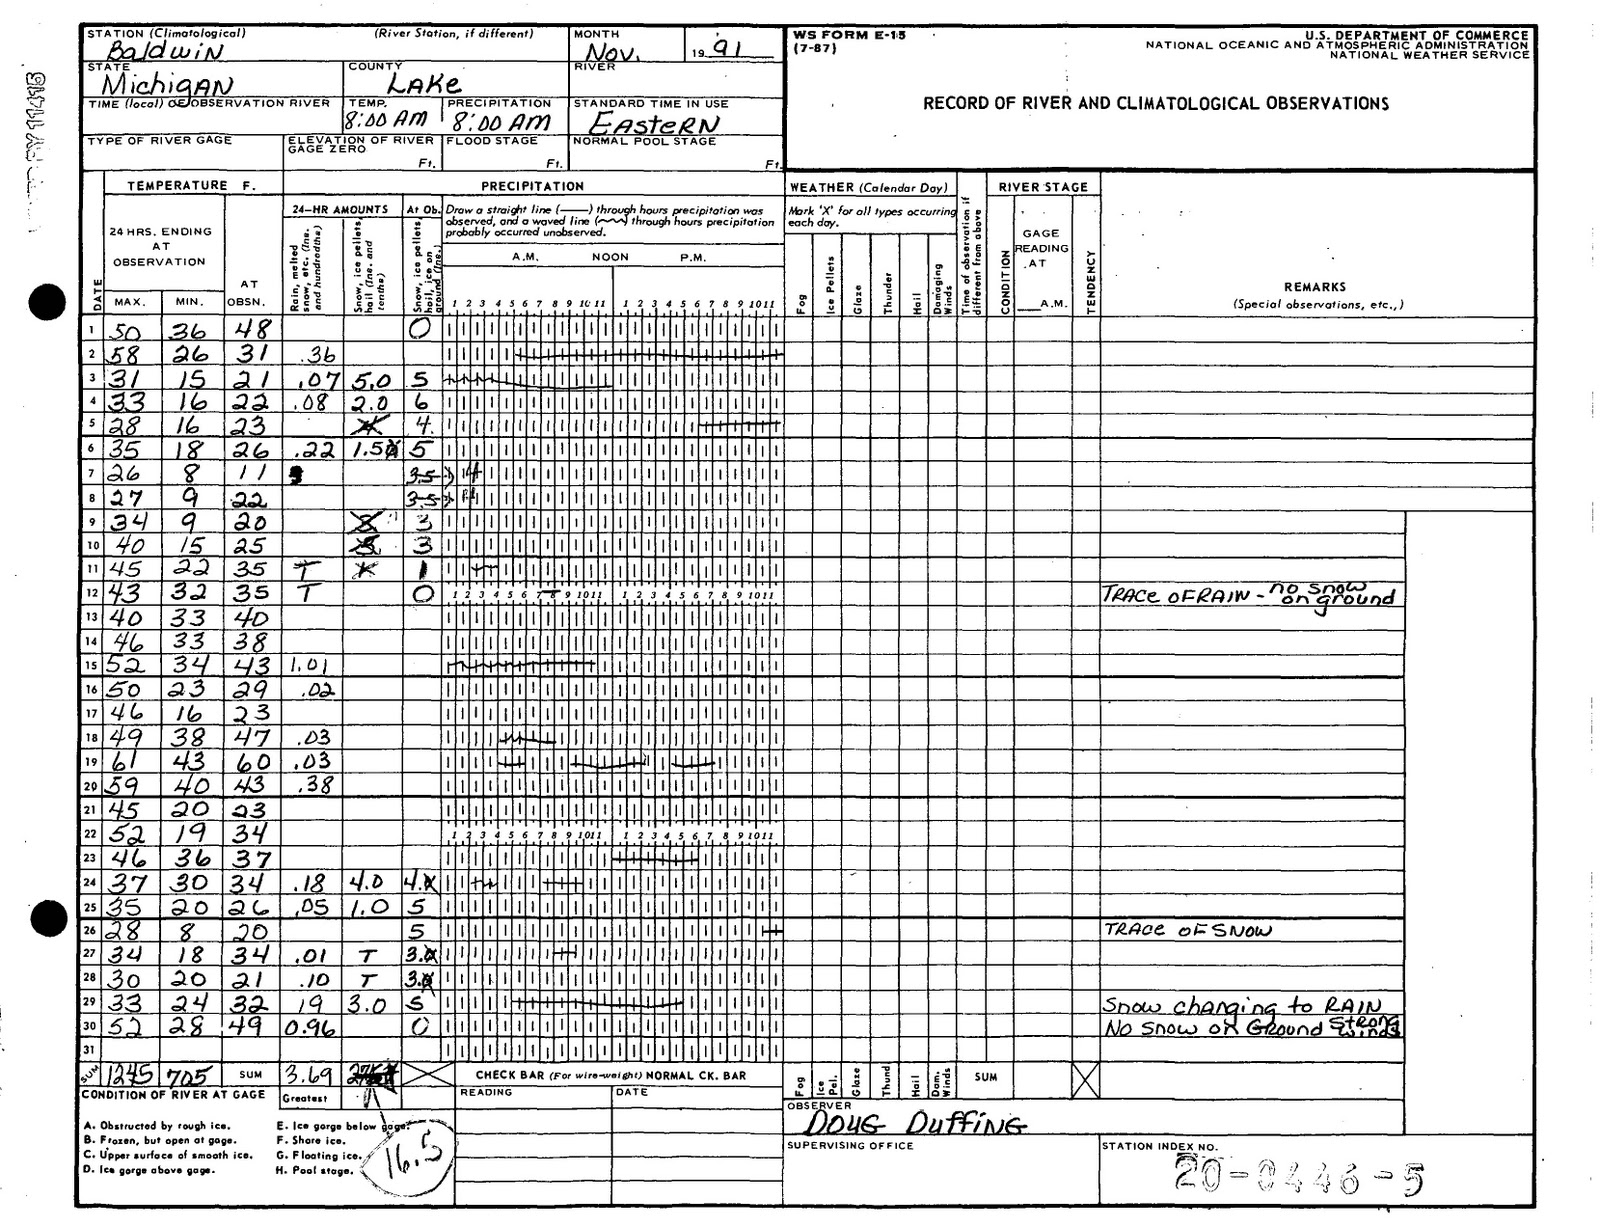 STATION (Climatological) (River Station, if different) MONTH WS FORM E-15 U.S. DEPARTMENT OF COMMERCE
Baldwin Nov. 19 91 (7-87) NATIONAL OCEANIC AND ATMOSPHERIC ADMINISTRATION
STATE COUNTY RIVER NATIONAL WEATHER SERVICE
Michigan Lake
TIME (local) OF OBSERVATION RIVER TEMP. PRECIPITATION STANDARD TIME IN USE RECORD OF RIVER AND CLIMATOLOGICAL OBSERVATIONS
8:00 AM 8:00 AM Eastern
TYPE OF RIVER GAGE ELEVATION OF RIVER GAGE ZERO Ft. FLOOD STAGE Ft. NORMAL POOL STAGE Ft.
TEMPERATURE F. PRECIPITATION WEATHER (Calendar Day) RIVER STAGE
24-HR AMOUNTS At Ob. Draw a straight line (——) through hours precipitation was observed, and a waved line (~~~) through hours precipitation probably occurred unobserved. Mark 'X' for all types occurring each day.
24 HRS. ENDING AT OBSERVATION AT OBSN. Rain, melted snow, etc. (Ins. and hundredths) Snow, ice pellets, hail (Ins. and tenths) Snow, ice pellets, hail, ice on ground (Ins.)
A.M. NOON P.M. Fog Ice Pellets Glaze Thunder Hail Damaging Winds Time of observation if different from above CONDITION GAGE READING AT A.M. TENDENCY REMARKS
DATE MAX. MIN. 1 2 3 4 5 6 7 8 9 10 11 1 2 3 4 5 6 7 8 9 10 11 (Special observations, etc.,)
1 50 36 48 0
2 58 26 31 .36
3 31 15 21 .07 5.0 5
4 33 16 22 .08 2.0 6
5 28 16 23 4.
6 35 18 26 .22 1.5 5
7 26 8 11 3.5
8 27 9 22 3.5
9 34 9 20 3
10 40 15 25 3
11 45 22 35 T 1
12 43 32 35 T 0 1 2 3 4 5 6 7 8 9 10 11 1 2 3 4 5 6 7 8 9 10 11 TRACE OF RAIN - no snow on ground
13 40 33 40
14 46 33 38
15 52 34 43 1.01
16 50 23 29 .02
17 46 16 23
18 49 38 47 .03
19 61 43 60 .03
20 59 40 43 .38
21 45 20 23
22 52 19 34 1 2 3 4 5 6 7 8 9 10 11 1 2 3 4 5 6 7 8 9 10 11
23 46 36 37
24 37 30 34 .18 4.0 4.
25 35 20 26 .05 1.0 5
26 28 8 20 5 TRACE OF SNOW
27 34 18 34 .01 T 3.
28 30 20 21 .10 T 3.
29 33 24 32 19 3.0 5 Snow changing to RAIN
30 52 28 49 0.96 0 No Snow on Ground Strong winds
31
SUM 1245 705 SUM 3.69 CHECK BAR (For wire-weight) NORMAL CK. BAR Fog Ice Pel. Glaze Thund Hail Dam. Winds SUM
CONDITION OF RIVER AT GAGE Greatest READING DATE
OBSERVER
A. Obstructed by rough ice. E. Ice gorge below gage. Doug Duffing
B. Frozen, but open at gage. F. Shore ice. SUPERVISING OFFICE STATION INDEX NO.
C. Upper surface of smooth ice. G. Floating ice. 16.5
D. Ice gorge above gage. H. Pool stage. 20-0446-5